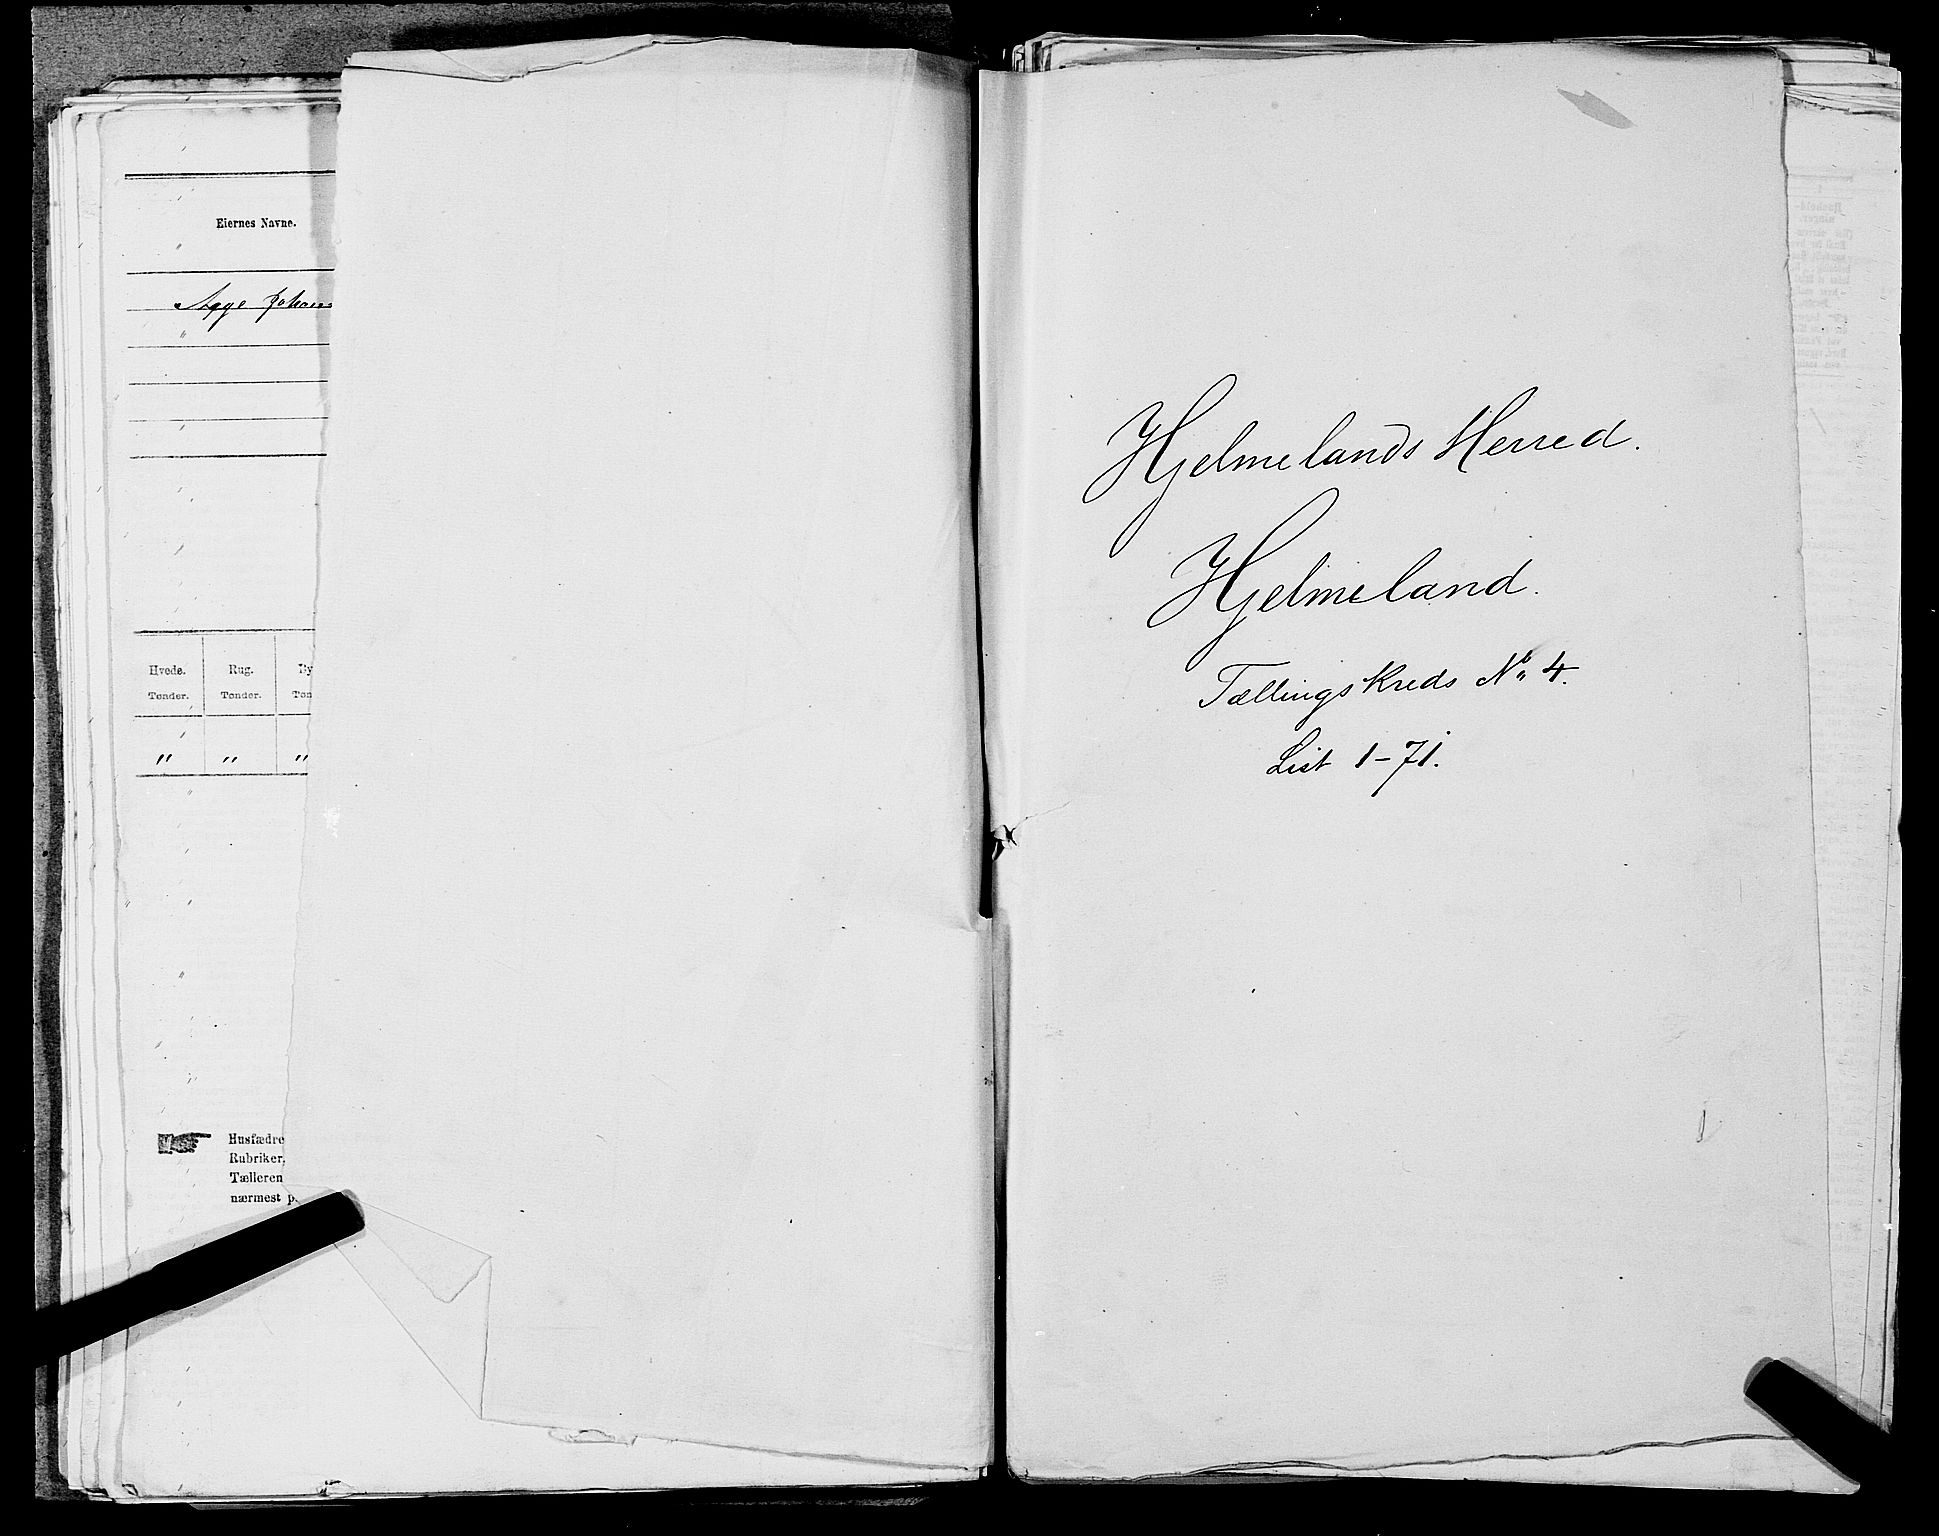 Eiernes Navne.
Hvede.
Rug.
Tønder.
Tønder.
„
„
„
Husfædre
Rubriker.
Tælleren
nærmest
Hjelmelands Herred.
Hjelmeland.
Tællingskreds No 4.
List 1-71.